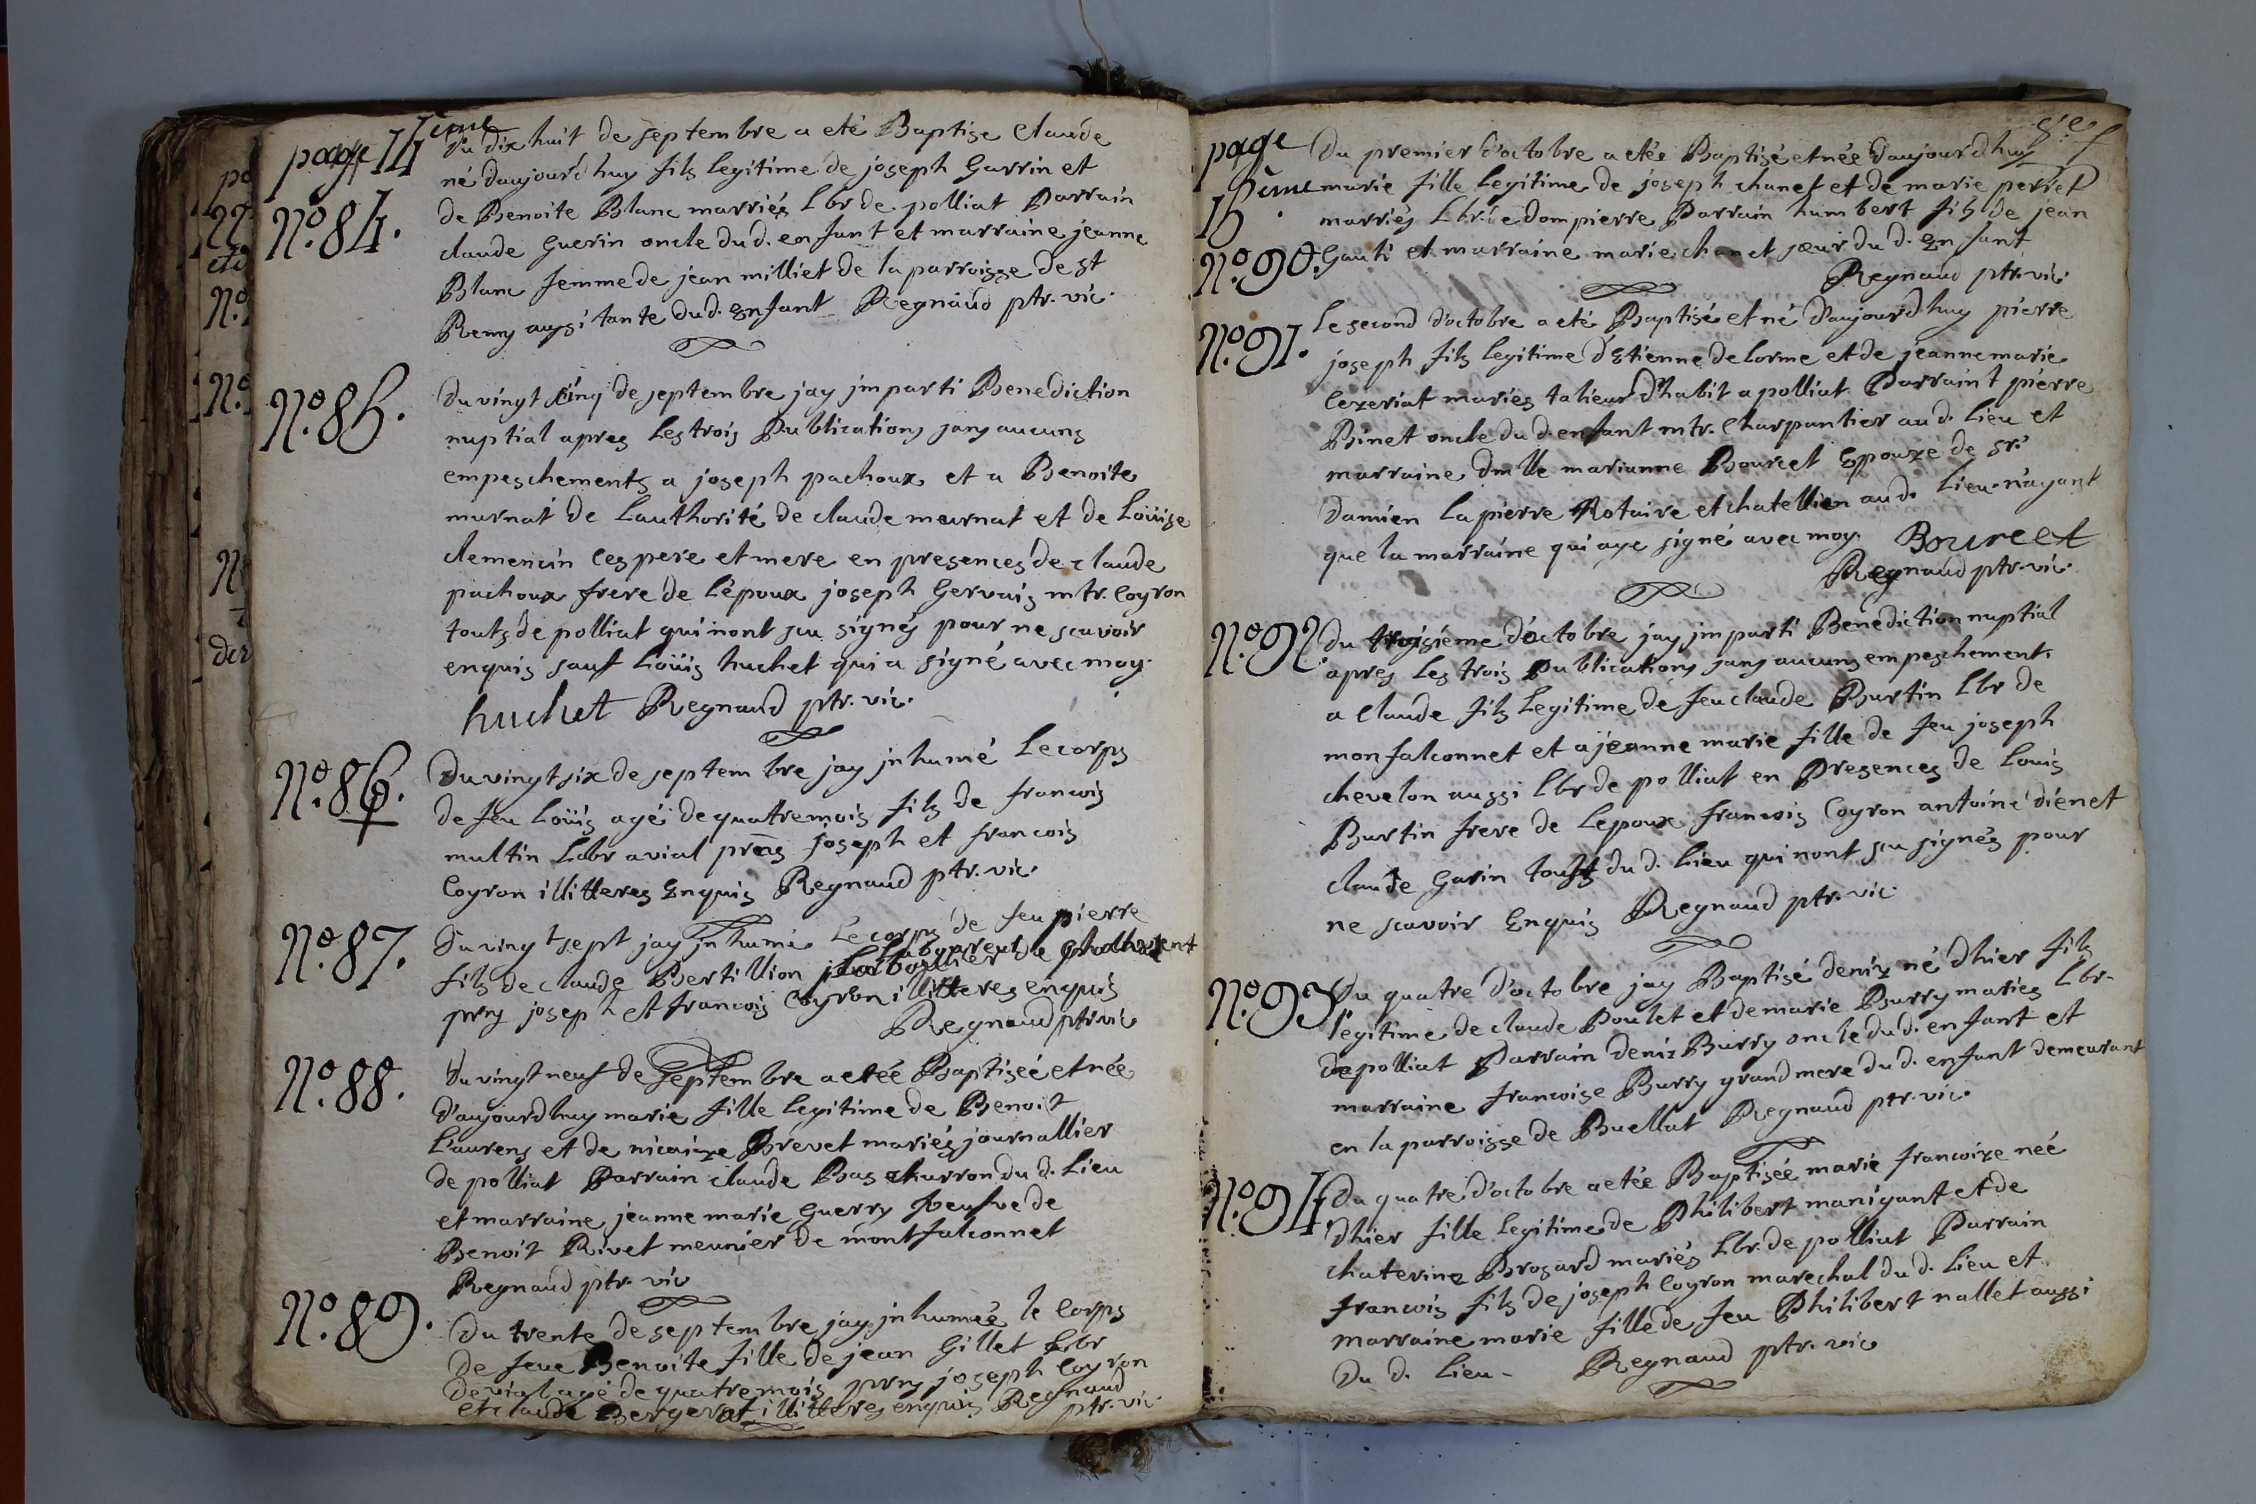 page 14eme
Du dix huit de septembre a eté Baptise Claude
né daujourd'huy fils legitime de joseph Garrin et
No. 84.
de Benoite Blanc marriés Lbr de polliat Parrain
claude Guerin oncle dud. enfant et marraine jeanne
Blanc femme de jean milliet de la parroisse de st
Remy aussi tante dud. Enfant Regnaud ptr. vic.
No. 85.
Du vingt cinq de septembre jay jmparti Benediction
nuptial apres les trois Publications sans aucuns
empeschements a joseph pachoux et a Benoite
murnat de Lauthorité de claude meurnat et de Loüise
clemencin ces pere et mere en presences de claude
pachoux frere de L'époux joseph Gervais mtr. Coyron
touts de polliat qui n'ont scu signés pour ne scavoir
enquis sauf Loüis huchet qui a signé avec moy.
huchet Regnaud ptr. vic.
No. 86.
Du vingt six de septembre jay jnhumé Le corps
de feu Loüis agéi de quatre mois fils de francois
multin Labr a vial prns joseph et francois
Coyron illitteres Enquis Regnaud ptr. vic.
No. 87.
Du vingt sept jay jnhumé Le corps de feu pierre
fils de claude Bertillion
prns joseph et francois Coyron illitteres enquis
Regnaud ptr vic
No. 88.
Du vingt neuf de septembre a etéé Baptiséé et néé
d'aujourdhuy marie fille legitime de Benoit
Laurens et de nicaize Brevet mariés journallier
de polliat Parrain claude Bas churron du d. Lieu
et marraine jeanne marie Guerry veufve de
Benoit Rivet meunier de montfalconnet
Regnaud ptr. vic
No. 89.
Du trente de septembre jay jnhuméé le Corps
de feue Benoite fille de jean Gillet Lbr
de vial agé de quatre mois prns joseph Coyron
et claude Bergerat illitteres enquis Regnaud
ptr. vic.
page 15eme
Du premier d'octobre a etée Baptisé et née daujourdhuy
marie fille legitime de joseph chanet et de marie perret
marriés Lbr. de dompierre Parrain humbert fils de jean
No. 90.
Gauti et marraine marie chanet sœur du d. Enfant
Regnaud ptr. vic.
No. 91.
Le second d'octobre a eté Baptisé et né d'aujourdhuy pierre
joseph fils legitime d'Etienne delorme et de jeanne marie
Cezeriat mariés talieur d'habit a polliat Parraint pierre
Binet oncle du d. enfant mtr. Charpantier au d. Lieu et
marraine dmlle marianne Bourcet Epouze de sr.
Damien Lapierre Notaire et chatellien au d. Lieu n'ayant
que la marraine qui aye signé avec moy. Bourcet
Regnaud ptr. vic.
No. 92
Du troisieme d'octobre jay jmparti Benediction nuptial
apres Les trois Publications sans aucuns empeschements
a Claude fils Legitime de feu claude Burtin Lbr de
monfalconnet et a jeanne marie fille de feu joseph
chevelon aussi Lbr de polliat en Presences de Louis
Burtin frere de Lepoux francois Coyron antoine dienet
claude Garin touts du d. Lieu qui n'ont scu signés pour
ne scavoir Enquis Regnaud ptr. vic.
No. 93
Du quatre d'octobre jay Baptisé deniz né dhier fils
legitime de claude Poulet et de marie Burry mariés Lbr.
de polliat Parrain deniz Burry oncle du d. enfant et
marraine francoise Burry grand mere du d. enfant demeurant
en la parroisse de Buellat Regnaud ptr. vic.
No. 94
Du quatre d'octobre a etée Baptisée marie francoize néé
dhier fille legitime de Philibert manigant et de
chaterine Brosard mariés Lbr. de polliat Parrain
francois fils de joseph Coyron marechal du d. Lieu et
marraine marie fille de feu Philibert nallet aussi
Du d. Lieu - Regnaud ptr. vic